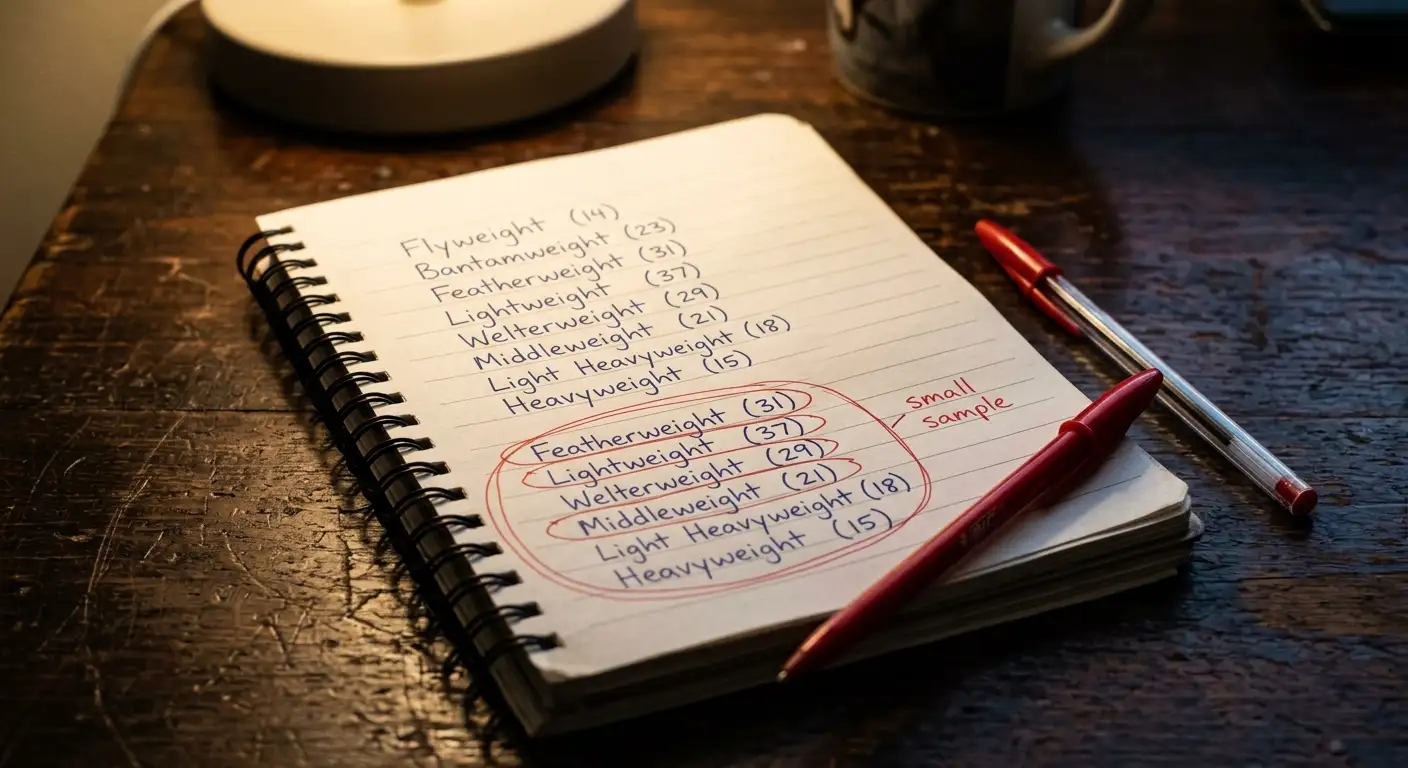 Flyweight (14)
Bantamweight (23)
Featherweight (31)
Lightweight (37)
Welterweight (29)
Middleweight (21)
Light Heavyweight (18)
Heavyweight (15)
Featherweight (31)
Lightweight (37)
Welterweight (29)
Middleweight (21)
Light Heavyweight (18)
Heavyweight (15)
small
sample